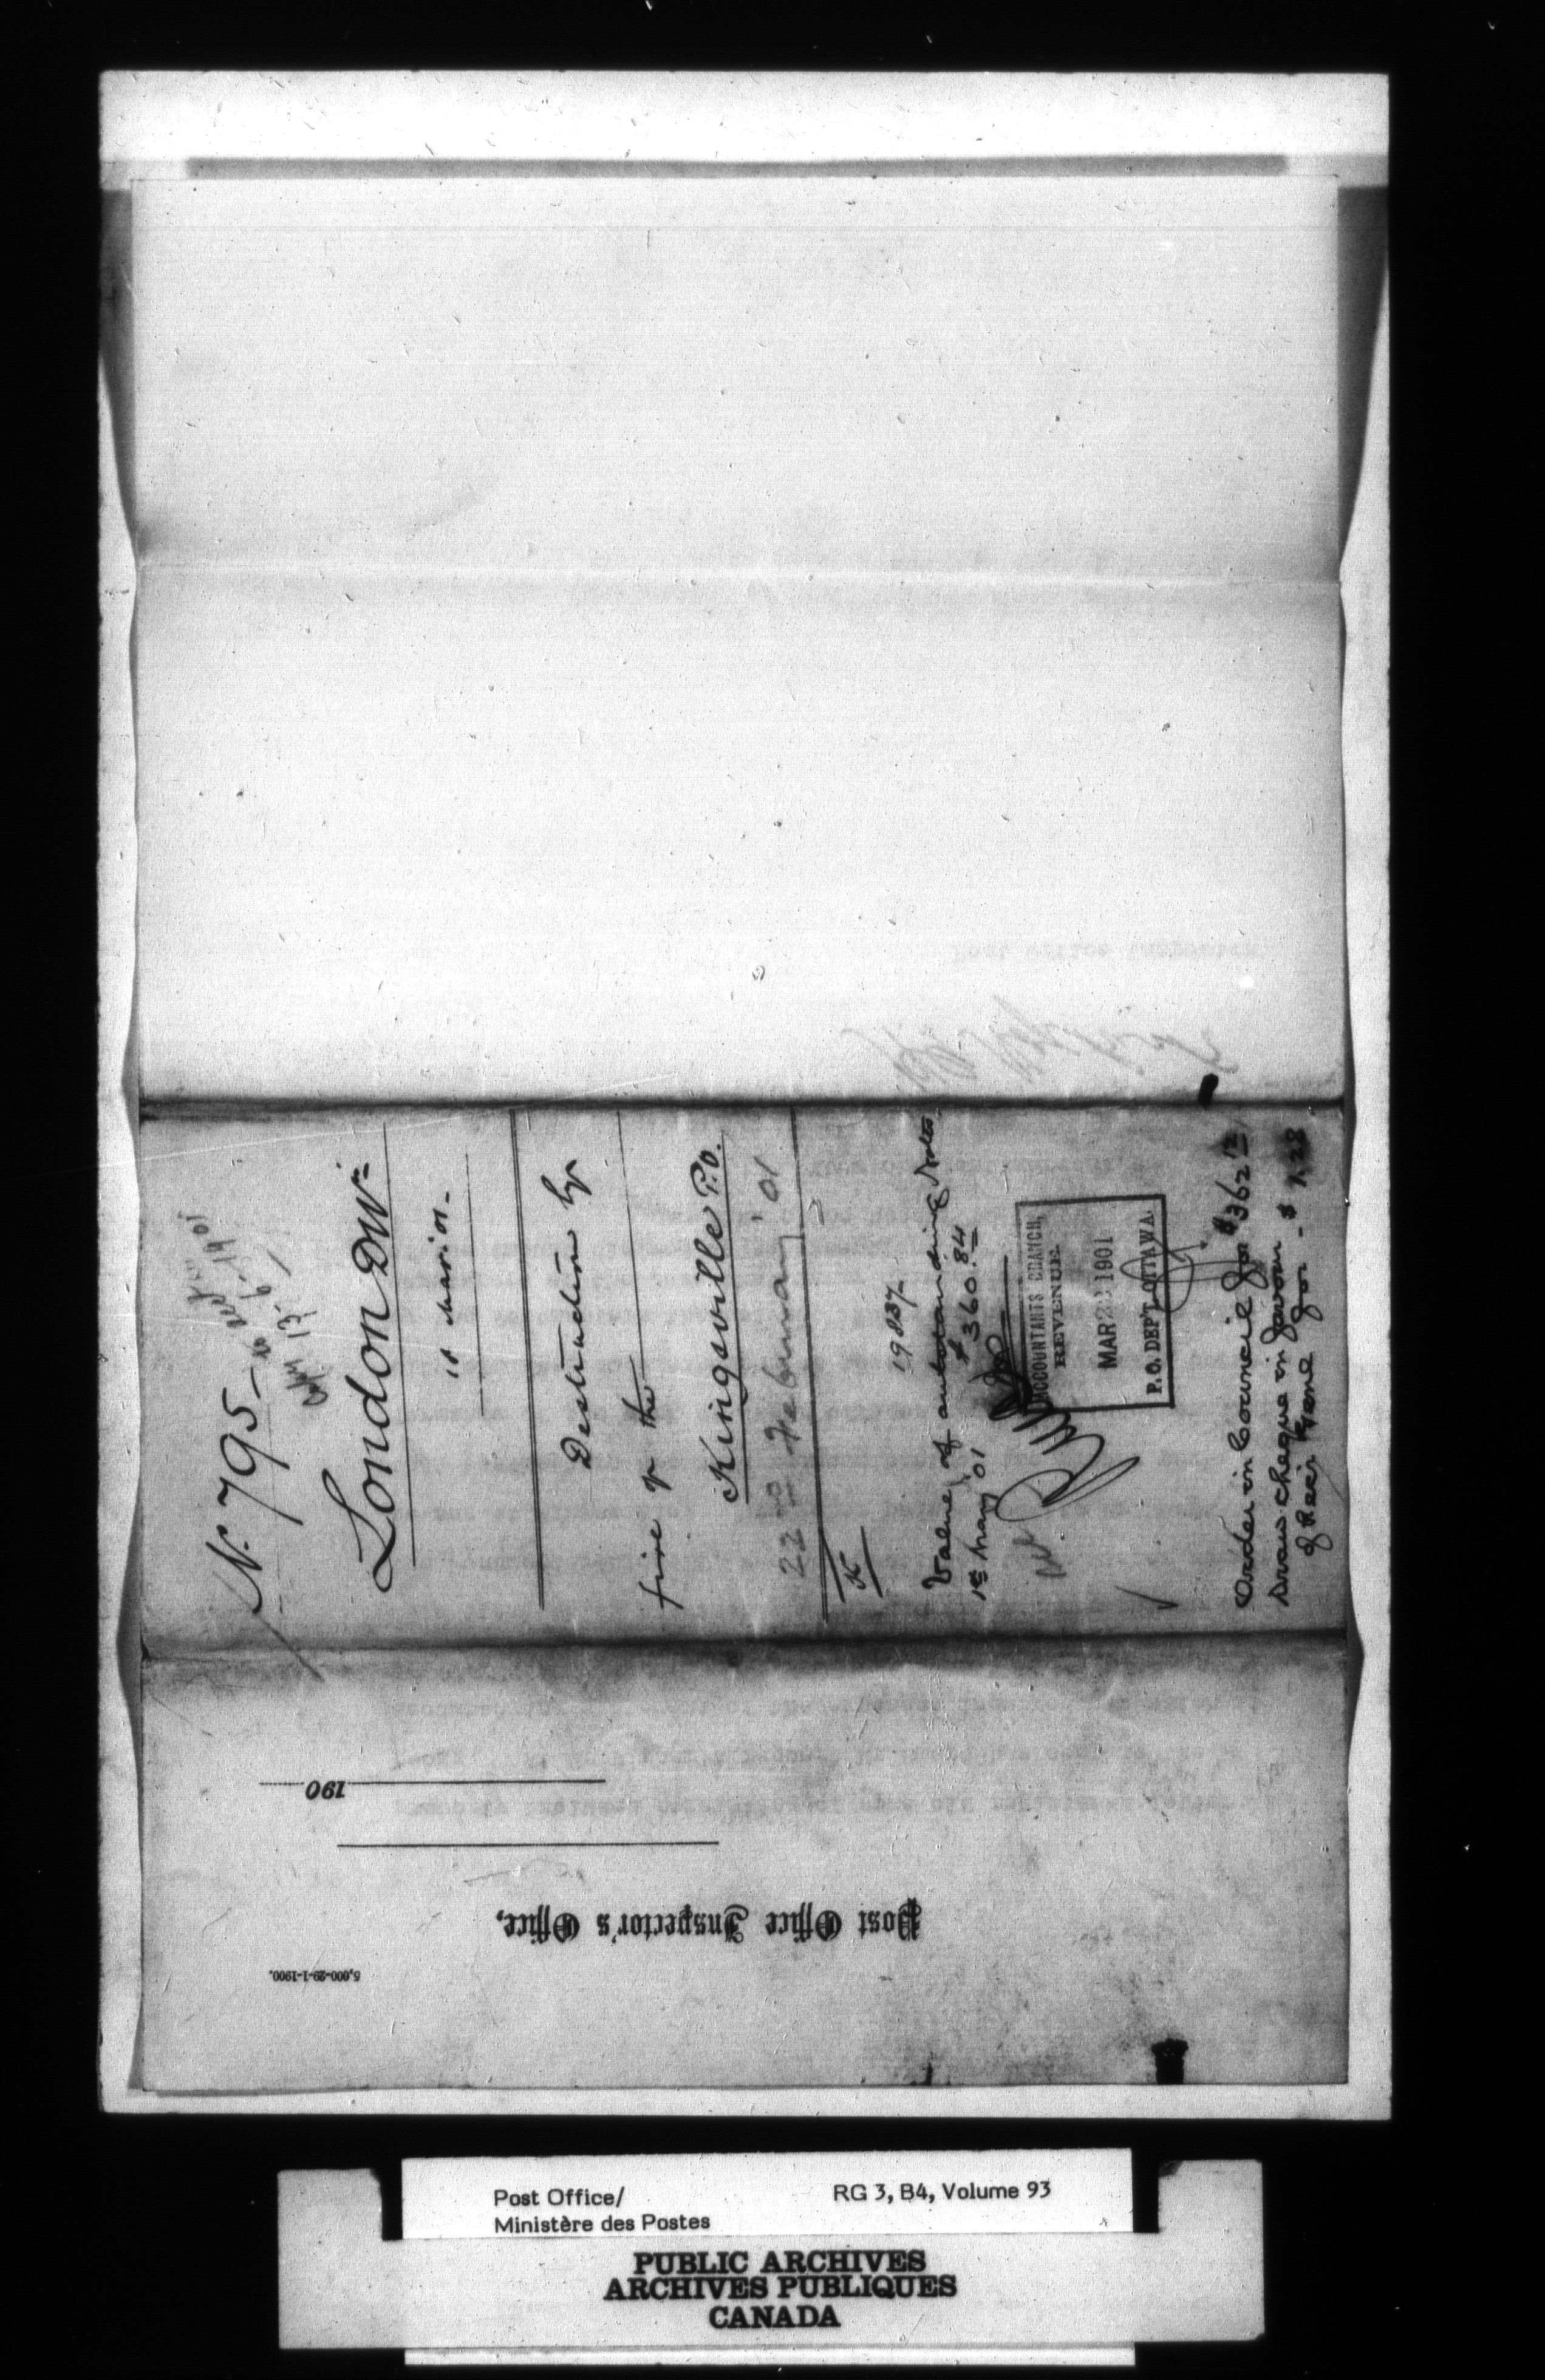 No. 795
Copy 13-6-1901
London Dn.
Destruction by
fire of the
Kingsville P.O.
22nd February '01
19837
Value of outstanding Notes
1st May '01 $360.84
ACCOUNTANTS BRANCH,
REVENUE
MAR 23 1901
P.O. DEPT. OTTAWA
Order in Council for $362.12
Draw cheque in favour
of Recr Genl for - $ 1.28
190
Post Office Inspector's Office,
5,000-29-1-1900.
Post Office/
Ministère des Postes
RG 3, B4, Volume 93
PUBLIC ARCHIVES
ARCHIVES PUBLIQUES
CANADA